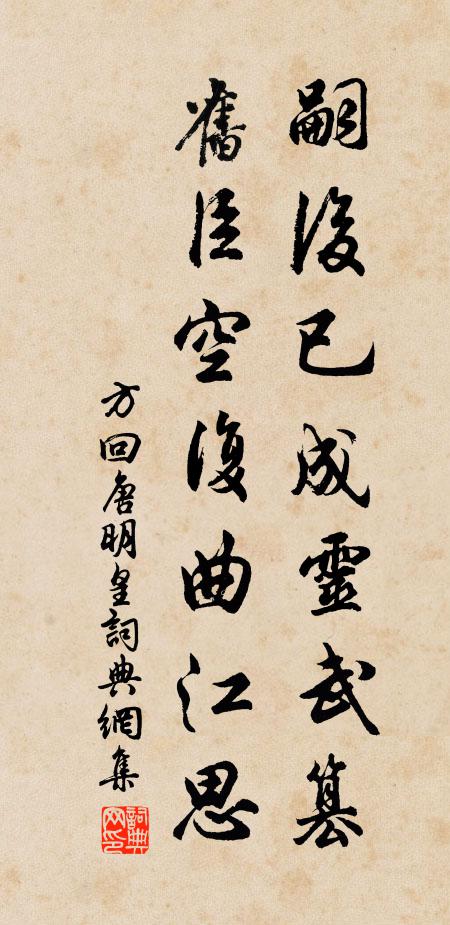 嗣後已成靈武篡
舊臣空復曲江思
方回唐明皇詞典網集
詞典网印